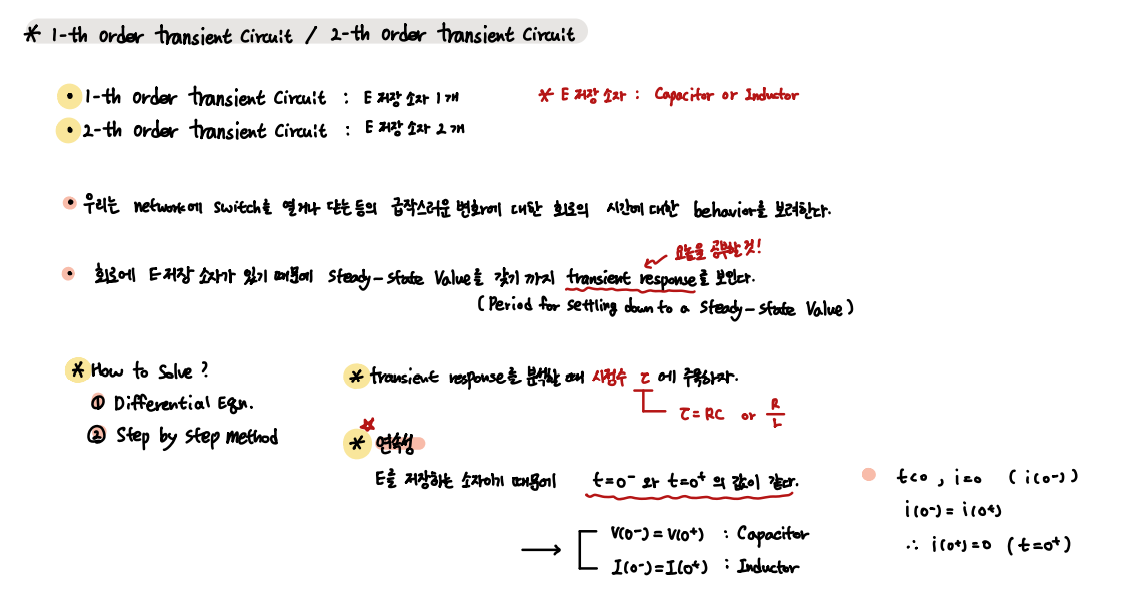 * 1-th order transient Circuit / 2-th order transient Circuit
• 1-th order transient Circuit : E 저장 소자 1개
* E 저장 소자 : Capacitor or Inductor
• 2-th order transient Circuit : E 저장 소자 2개
• 우리는 network에 switch를 열거나 닫는등의 급작스러운 변화에 대한 회로의 시간에 대한 behavior를 보려한다.
오늘은 공부할 것!
• 회로에 E저장 소자가 있기 때문에 Steady-state Value를 갖기 까지 transient response를 보인다.
(Period for settling down to a steady-state Value)
* How to Solve?
① Differential Eqn.
② Step by step method
* transient response를 분석할 때 시정수 τ 에 주목하자.
τ=RC or R/L
* 연속성
E를 저장하는 소자이기 때문에 t=0⁻ 와 t=0⁺ 의 값이 같다.
→ V(0-)=V(0+) : Capacitor
I(0-)=I(0+) : Inductor
• t<0 , i=0 (i(0-))
i(0-)=i(0+)
∴ i(0+)=0 (t=0⁺)